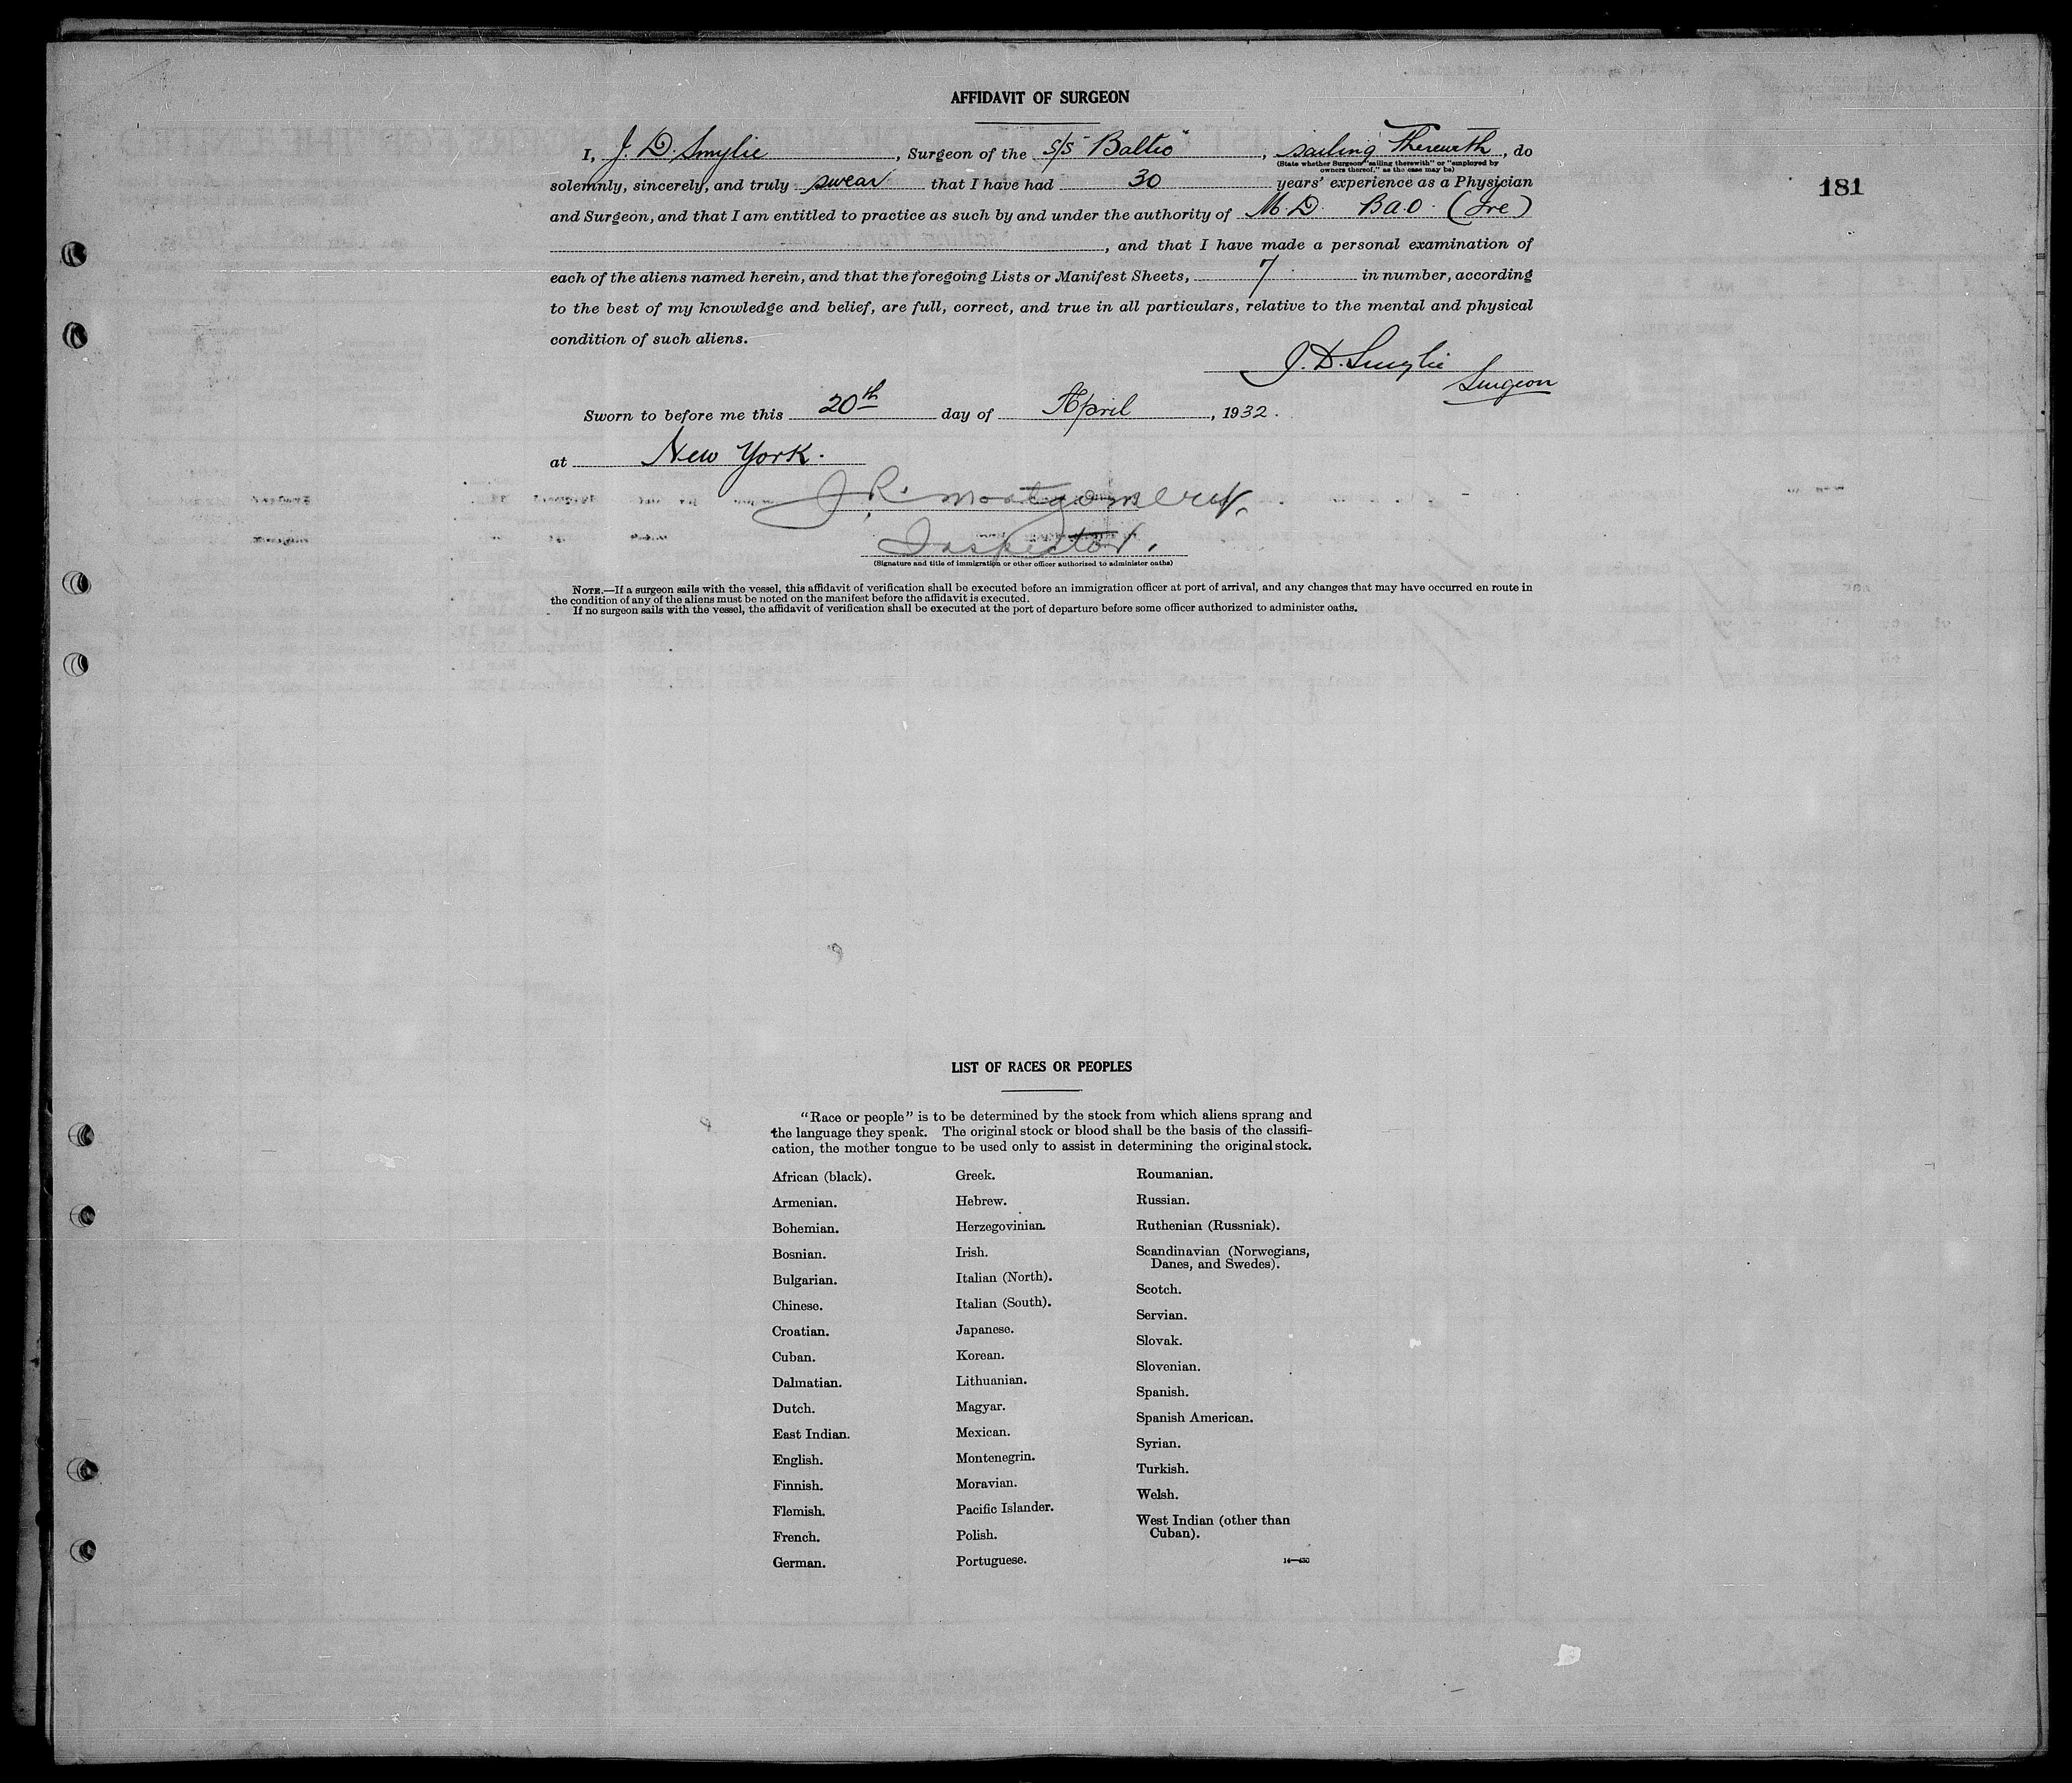 AFFIDAVIT OF SURGEON
I, J. D. Smylie, Surgeon of the s/s "Baltic", sailing therewith, do
(State whether Surgeon "sailing therewith" or "employed by
owners thereof," as the case may be)
solemnly, sincerely, and truly swear that I have had 30 years' experience as a Physician
181
and Surgeon, and that I am entitled to practice as such by and under the authority of M.D. B.A.O. (Ire)
, and that I have made a personal examination of
each of the aliens named herein, and that the foregoing Lists or Manifest Sheets, 7 in number, according
to the best of my knowledge and belief, are full, correct, and true in all particulars, relative to the mental and physical
condition of such aliens.
J. D. Smylie
Surgeon
Sworn to before me this 20th day of April, 1932.
at New York.
J. R. Montgomery.
Inspector.
(Signature and title of immigration or other officer authorized to administer oaths)
NOTE.—If a surgeon sails with the vessel, this affidavit of verification shall be executed before an immigration officer at port of arrival, and any changes that may have occurred en route in
the condition of any of the aliens must be noted on the manifest before the affidavit is executed.
If no surgeon sails with the vessel, the affidavit of verification shall be executed at the port of departure before some officer authorized to administer oaths.
LIST OF RACES OR PEOPLES
"Race or people" is to be determined by the stock from which aliens sprang and
the language they speak. The original stock or blood shall be the basis of the classifi-
cation, the mother tongue to be used only to assist in determining the original stock.
African (black).
Armenian.
Bohemian.
Bosnian.
Bulgarian.
Chinese.
Croatian.
Cuban.
Dalmatian.
Dutch.
East Indian.
English.
Finnish.
Flemish.
French.
German.
Greek.
Hebrew.
Herzegovinian.
Irish.
Italian (North).
Italian (South).
Japanese.
Korean.
Lithuanian.
Magyar.
Mexican.
Montenegrin.
Moravian.
Pacific Islander.
Polish.
Portuguese.
Roumanian.
Russian.
Ruthenian (Russniak).
Scandinavian (Norwegians,
Danes, and Swedes).
Scotch.
Servian.
Slovak.
Slovenian.
Spanish.
Spanish American.
Syrian.
Turkish.
Welsh.
West Indian (other than
Cuban).